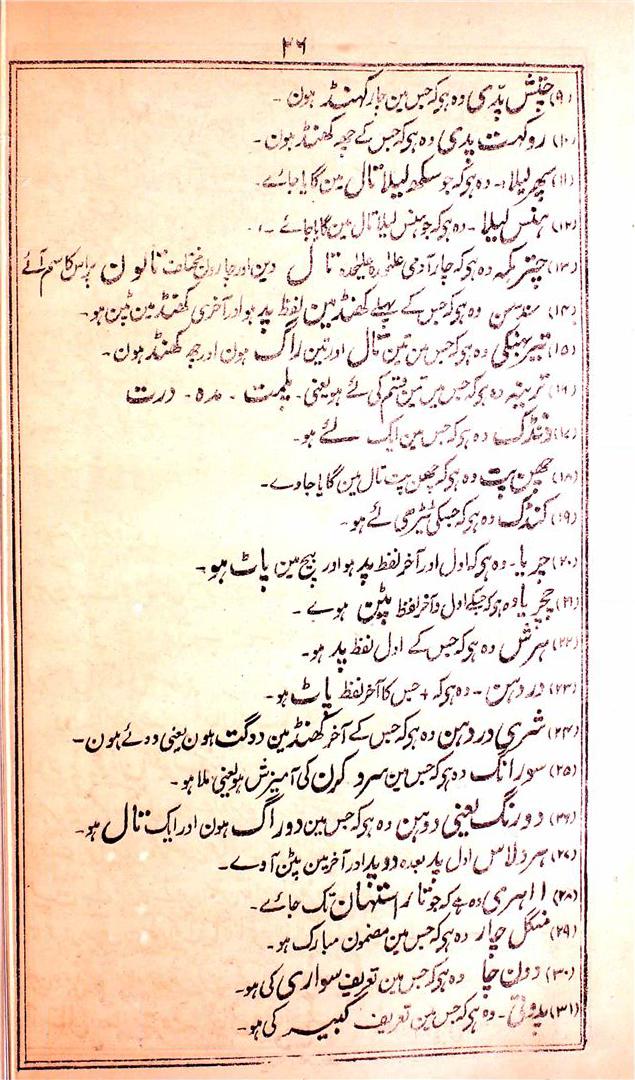 ۲۶
(۹) چتش پدی وہ ہو کہ جس مین چار کھنڈ ہون ۔
(۱۰) روکھت پدی وہ ہو کہ جس کے چھ کھنڈ ہون ۔
(۱۱) سپھر لیلا ۔ وہ ہو کہ جو سکھ لیلا تال مین گایا جائے ۔
(۱۲) ہنس لیلا ۔ وہ ہو کہ جو ہنس لیلا تال مین گایا جائے ۔
(۱۳) چتر مکہ وہ ہو کہ چار آدمی علیحدہ علیحدہ تال دین اور چارون مختلف تالون پر اس کا سم آئے
(۱۴) سندسن وہ ہو کہ جس کے پہلے کھنڈ مین لفظ پد ہو اور آخری کھنڈ مین پٹن ہو ۔
(۱۵) تیر بھنکی وہ ہو کہ جس مین تین تال اور تین راگ ہون اور چھ کھنڈ ہون ۔
(۱۶) ترپنہ وہ ہو کہ جس مین تین قسم کی لے ہو یعنی ۔ بلمت ۔ مدہ ۔ درت
(۱۷) ڈنڈک وہ ہو کہ جس مین ایک لے ہو ۔
(۱۸) جھپن پت وہ ہو کہ جھپن پت تال مین گایا جاوے ۔
(۱۹) کنڈک وہ ہو کہ جسکی ٹیڑھی لے ہو ۔
(۲۰) چریا ۔ وہ ہو کہ اول اور آخر لفظ پد ہو اور بیچ مین پاٹ ہو ۔
(۲۱) چچریا وہ ہو کہ جسکے اول و آخر لفظ پٹن ہوے ۔
(۲۲) ہرش وہ ہو کہ جس کے اول لفظ پد ہو ۔
(۲۳) دردہن ۔ وہ ہو کہ + جس کا آخر لفظ پاٹ ہو ۔
(۲۴) شری دردہن وہ ہو کہ جس کے آخر کھنڈ مین دوگت ہون یعنی دو لے ہون ۔
(۲۵) سورانگ وہ ہو کہ جس مین سرو کرن کی آمیزش ہو یعنی ملا ہو ۔
(۲۶) دورنگ یعنی دوہن وہ ہو کہ جس مین دو راگ ہون اور ایک تال ہو ۔
(۲۷) ہردلاس اول پد بعدہ دو پد اور آخر مین پٹن آوے ۔
(۲۸) اہری وہ ہے کہ جو تار استھان تک جائے ۔
(۲۹) منگل چار وہ ہو کہ جس مین مضمون مبارک ہو ۔
(۳۰) دون چا وہ ہو کہ جس مین تعریف سواری کی ہو ۔
(۳۱) وہ ہو کہ جس مین تعریف کبیر کی ہو ۔